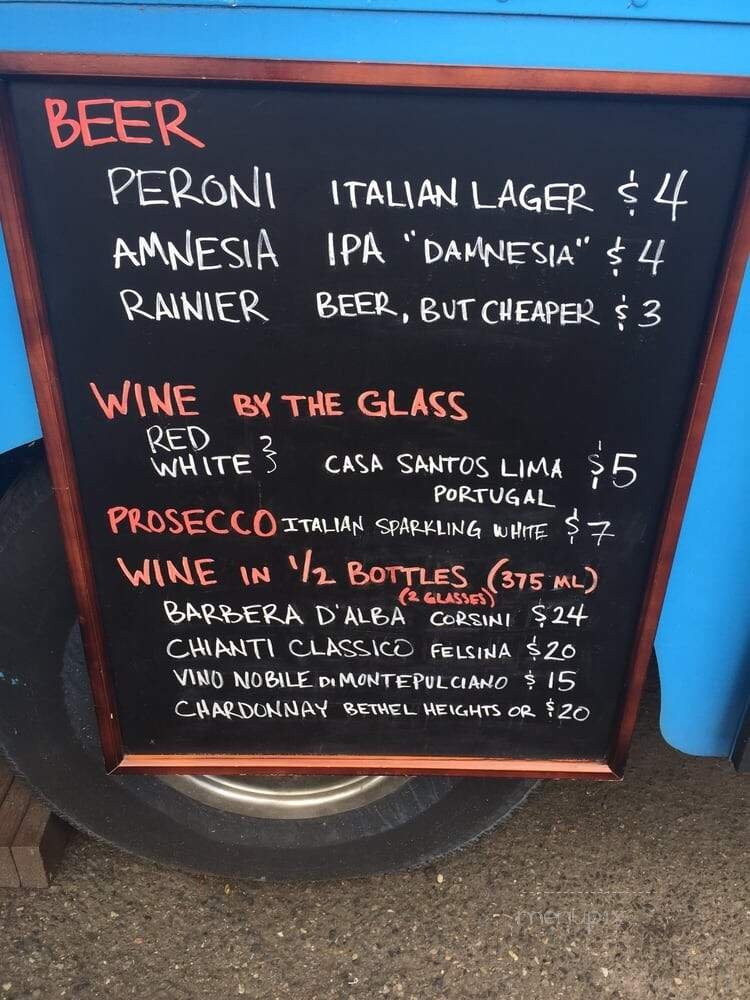 BEER
PERONI ITALIAN LAGER $4
AMNESIA IPA "DAMNESIA" $4
RAINIER BEER, BUT CHEAPER $3
WINE BY THE GLASS
RED
WHITE } CASA SANTOS LIMA $5
PORTUGAL
PROSECCO ITALIAN SPARKLING WHITE $7
WINE IN 1/2 BOTTLES (375 ML)
(2 GLASSES)
BARBERA D'ALBA CORSINI $24
CHIANTI CLASSICO FELSINA $20
VINO NOBILE DI MONTEPULCIANO $15
CHARDONNAY BETHEL HEIGHTS OR $20
menupix